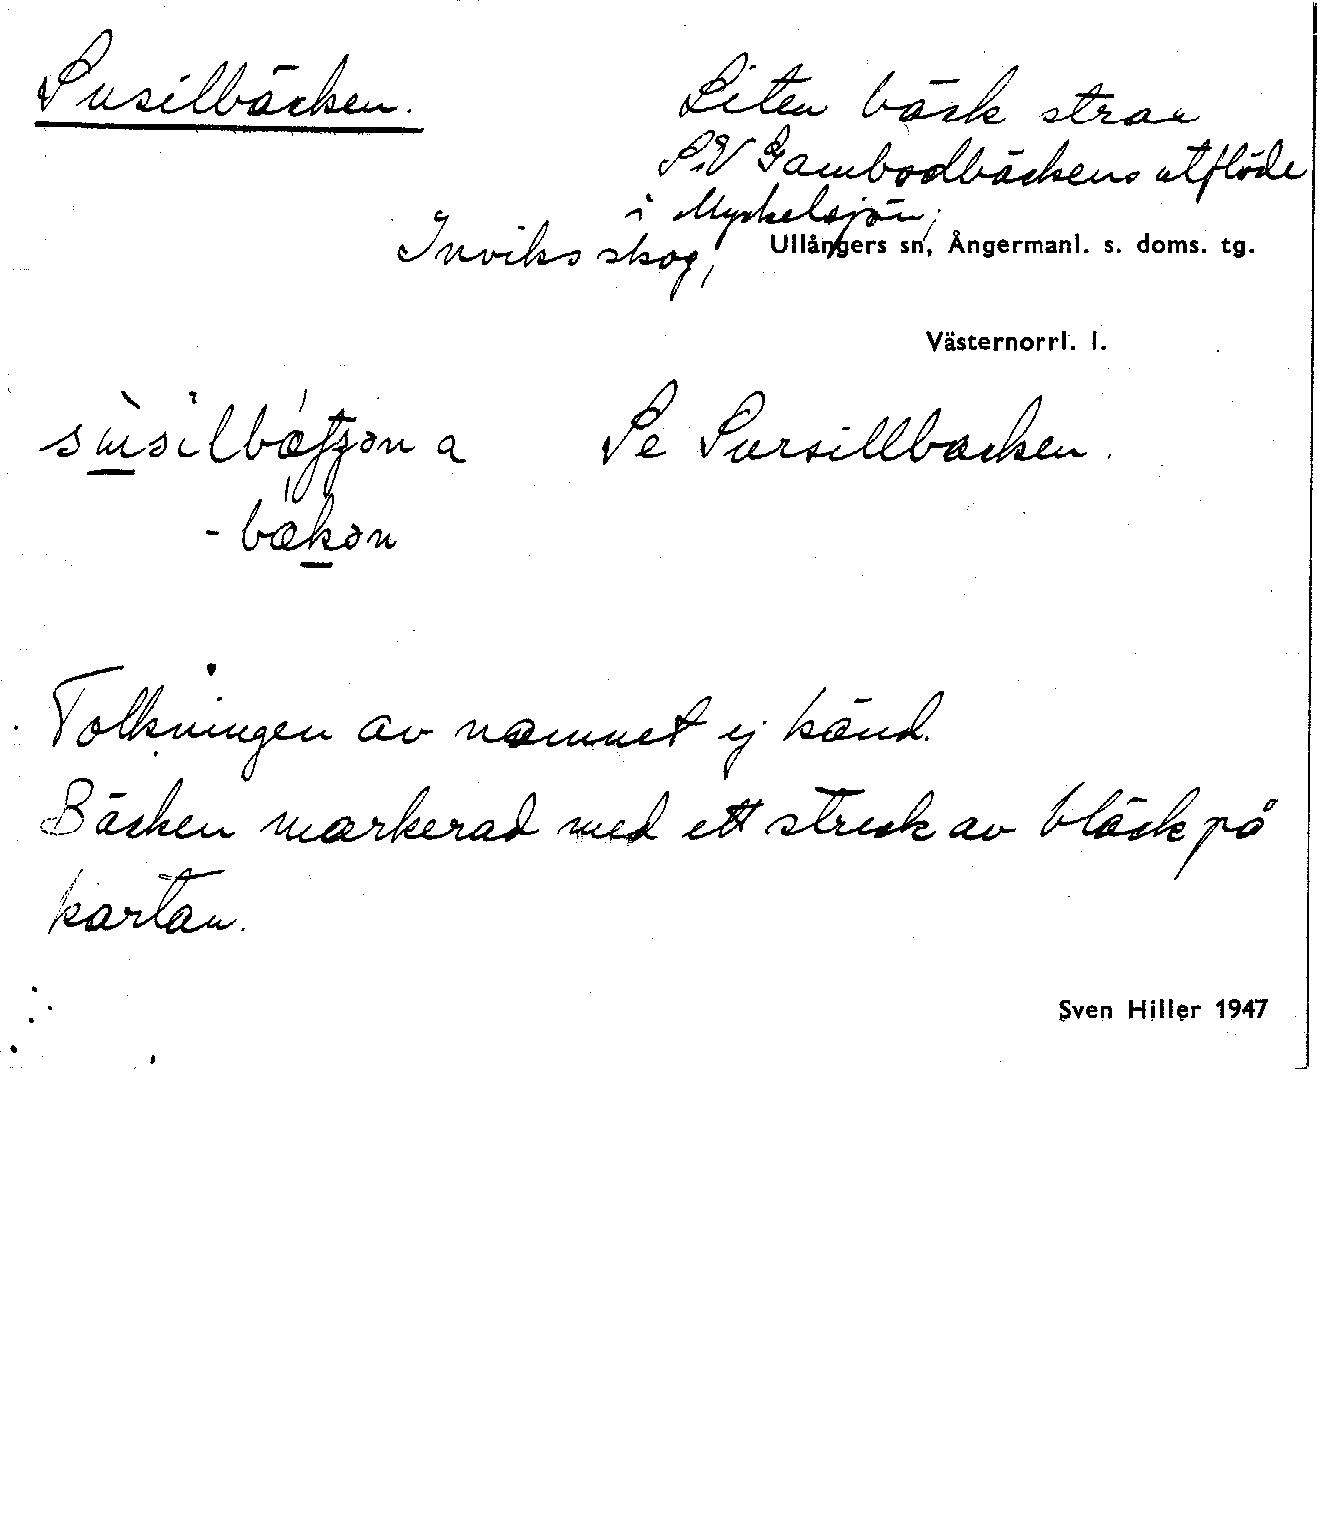 Susilbäcken.
Liten bäck strax
S.V Gambodbäckens utflöde
i Myckelsjön,
Inviks skog, Ullångers sn, Ångermanl. s. doms. tg.
Västernorrl. l.
Se Sursillbäcken.
Tolkningen av namnet ej känd.
Bäcken markerad med ett streck av bläck på
kartan.
Sven Hiller 1947